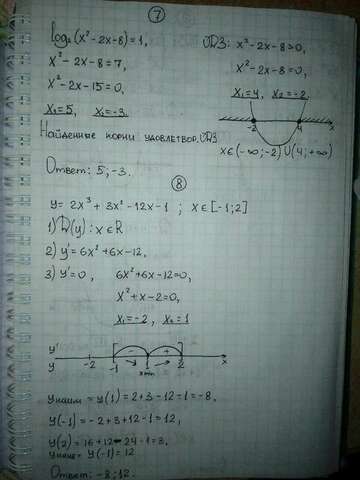 ⑦
log₇(x²-2x-8)=1, ОДЗ: x²-2x-8>0,
x²-2x-8=7, x²-2x-8=0,
x²-2x-15=0, x₁=4, x₂=-2
x₁=5, x₂=-3.
-2 4 x
Найденные корни удовлетвор. ОДЗ
x∈(-∞;-2)∪(4;+∞)
Ответ: 5;-3.
⑧
y= 2x³+3x²-12x-1 ; x∈[-1;2]
1) D(y): x∈R
2) y'=6x²+6x-12,
3) y'=0, 6x²+6x-12=0,
x²+x-2=0,
x₁=-2, x₂=1
y' - +
y -2 -1 xmin 2 x
yнаим = y(1)=2+3-12-1=-8,
y(-1)=-2+3+12-1=12,
y(2)=16+12-24-1=3,
yнаиб= y(-1)=12
Ответ: -8;12.